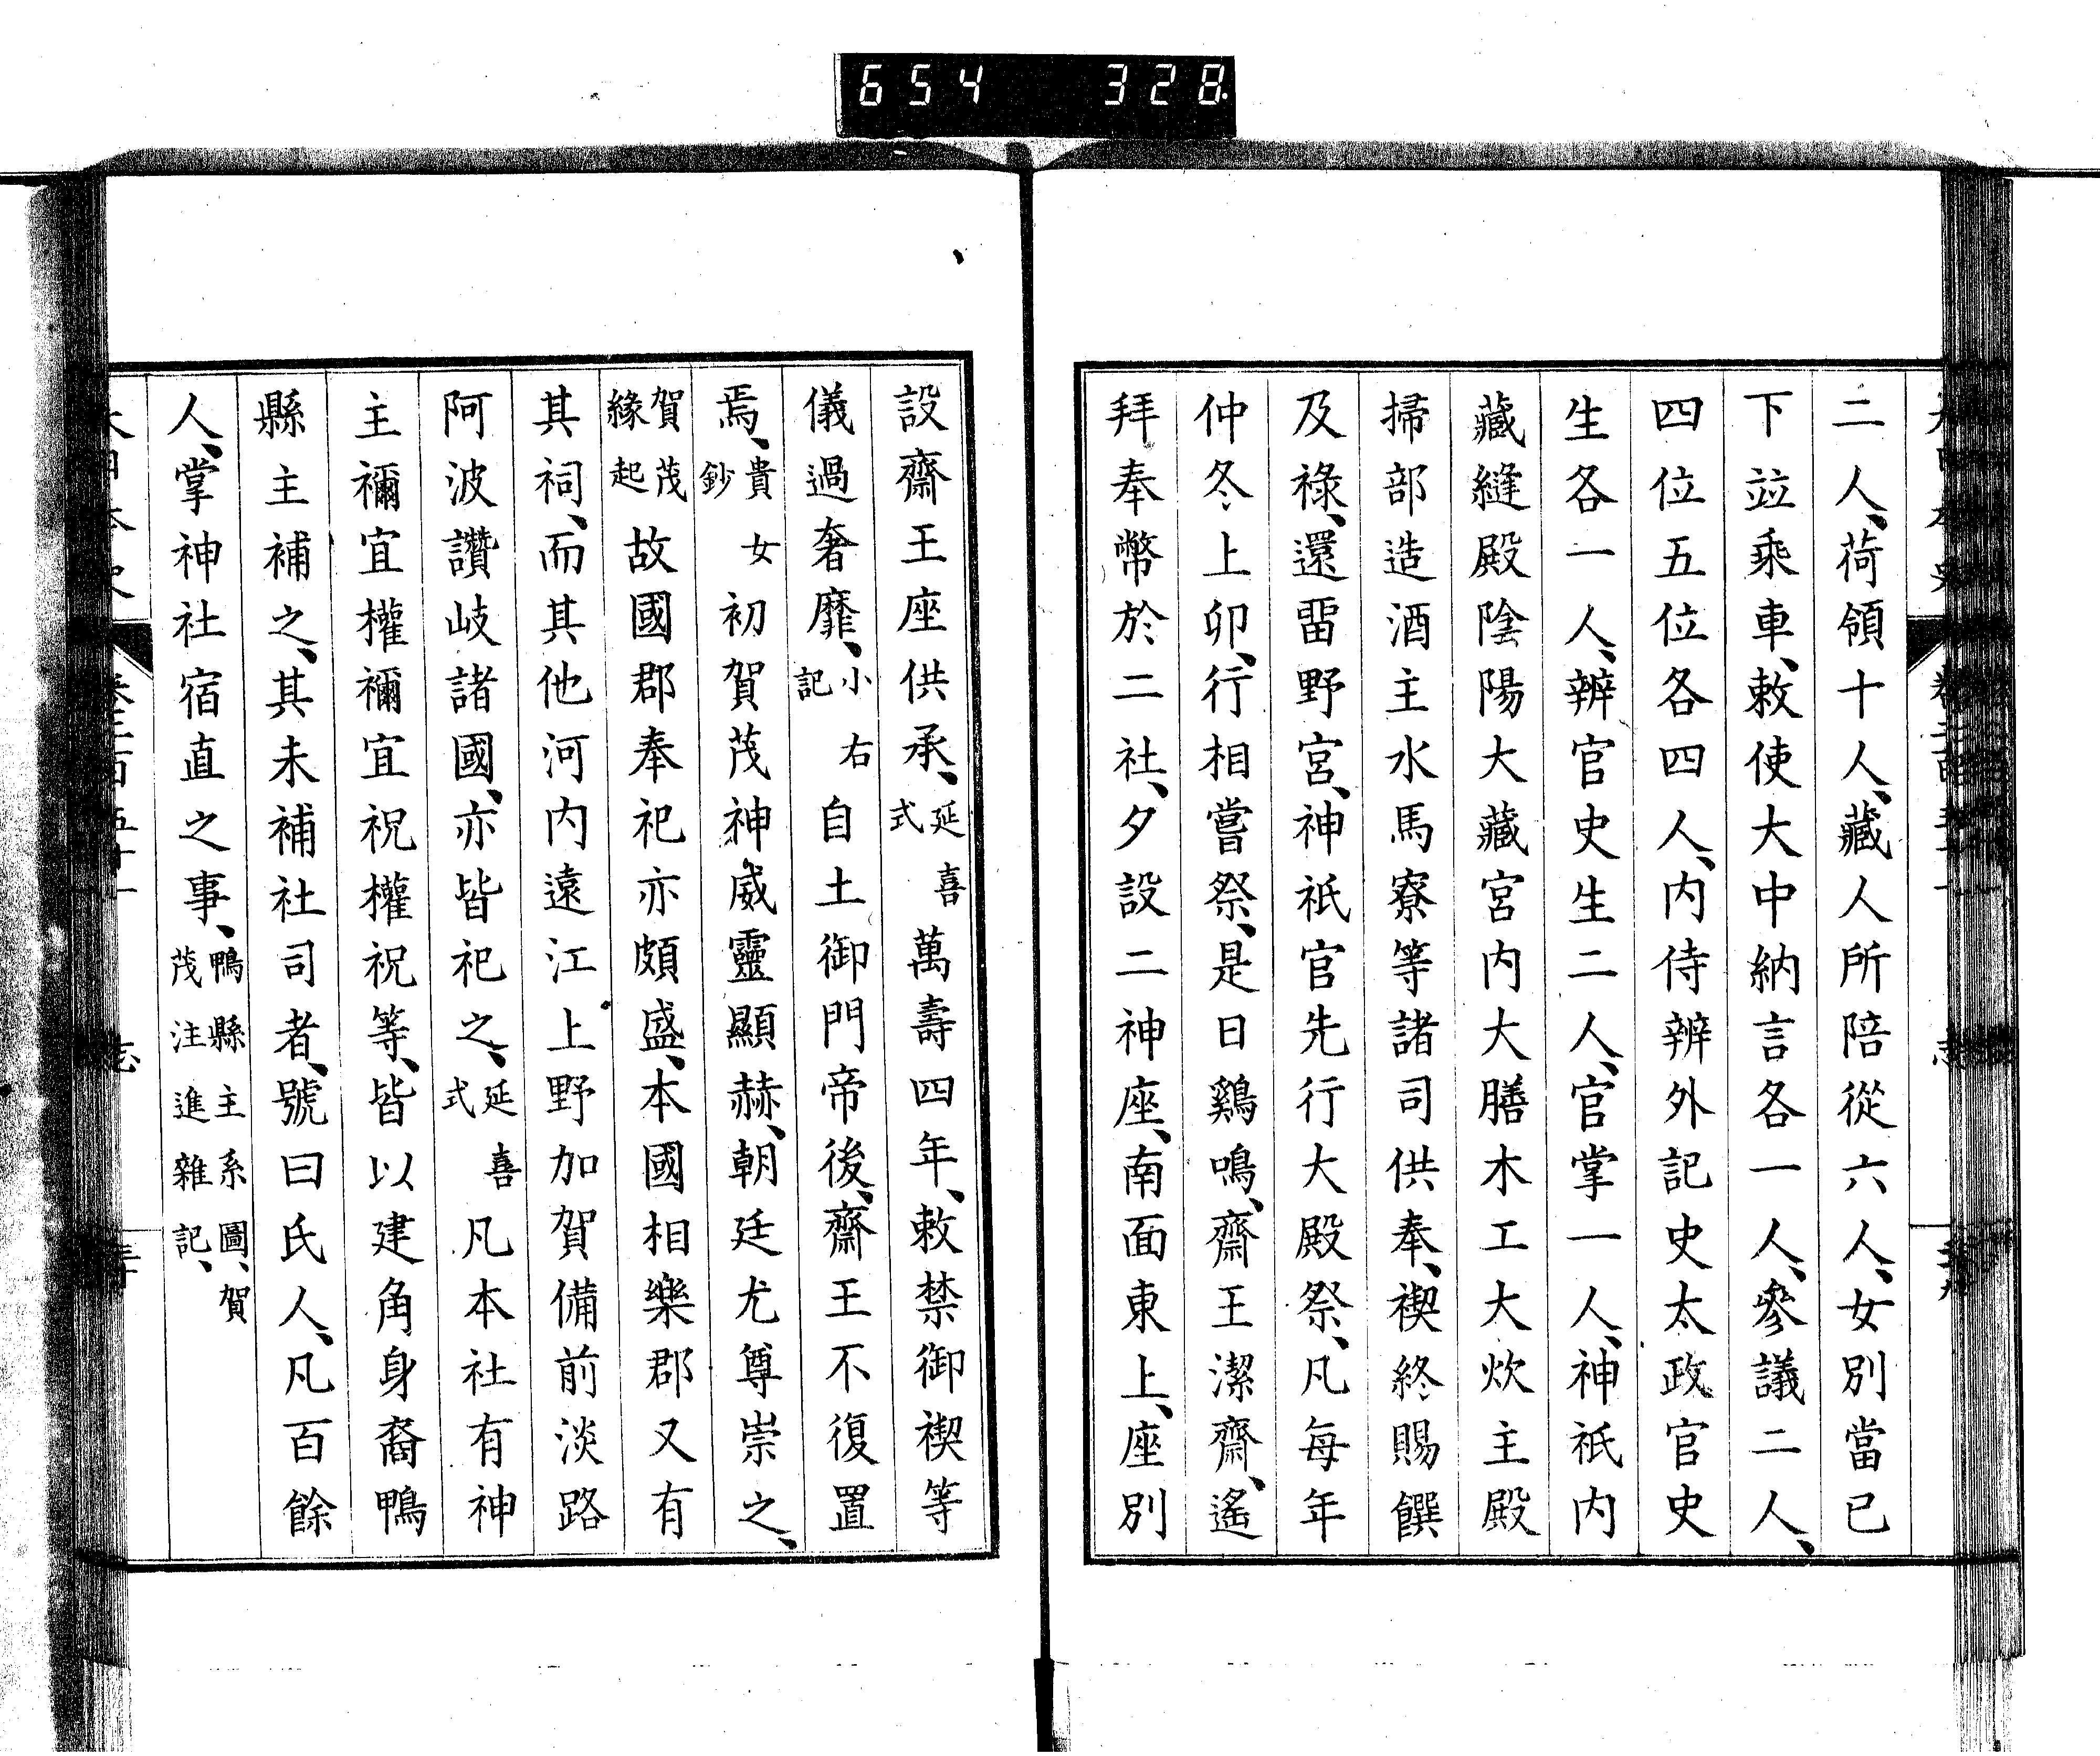 654 328
二人、荷領十人、藏人所陪從六人、女別當已
下竝乘車、敕使大中納言各一人、參議二人、
四位五位各四人、内侍辨外記史太政官史
生各一人、辨官史生二人、官掌一人、神祇内
藏縫殿陰陽大藏宮内大膳木工大炊主殿
掃部造酒主水馬寮等諸司供奉、禊終賜饌
及祿、還畱野宮、神祇官先行大殿祭、凡每年
仲冬上卯、行相嘗祭、是日鷄鳴、齋王潔齋、遙
拜奉幣於二社、夕設二神座、南面東上、座別
設齋王座供承、延喜式萬壽四年、敕禁御禊等
儀過奢靡、小右記自土御門帝後、齋王不復置
焉、貴女鈔初賀茂神威靈顯赫、朝廷尤尊崇之、
賀茂緣起故國郡奉祀亦頗盛、本國相樂郡又有
其祠、而其他河内遠江上野加賀備前淡路
阿波讚岐諸國、亦皆祀之、延喜式凡本社有神
主禰宜權禰宜祝權祝等、皆以建角身裔鴨
縣主補之、其未補社司者、號曰氏人、凡百餘
人、掌神社宿直之事、鴨縣主系圖、賀茂注進雜記、